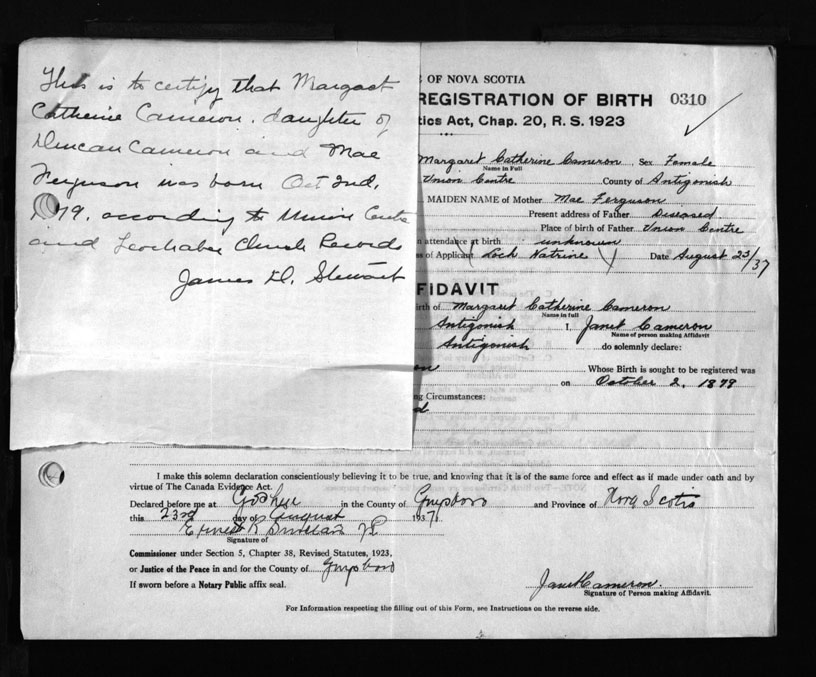 This is to certify that Margaret
Catherine Cameron, daughter of
Duncan Cameron and Mae
Ferguson was born Oct 2nd,
79, according to Union Centre
and Lochaber Church Records
James D. Stewart
OF NOVA SCOTIA
REGISTRATION OF BIRTH 0310
tics Act, Chap. 20, R. S. 1923
Margaret Catherine Cameron, Sex Female
Name in Full
Union Centre County of Antigonish
MAIDEN NAME of Mother Mae Ferguson
Present address of Father Diseased
Place of birth of Father Union Centre
n attendance at birth unknown
s of Applicant Loch Katrine Date August 23/37
FIDAVIT
irth of Margaret Catherine Cameron
Name in full
Antigonish I, Janet Cameron
Name of person making Affidavit
Antigonish do solemnly declare:
on Whose Birth is sought to be registered was
on October 2, 1879
ng Circumstances:
d
I make this solemn declaration conscientiously believing it to be true, and knowing that it is of the same force and effect as if made under oath and by
virtue of The Canada Evidence Act.
Declared before me at Goshen in the County of Guysboro and Province of Nova Scotia
this 23rd day of August 1937
Ernest R J.P.
Signature of
Commissioner under Section 5, Chapter 38, Revised Statutes, 1923,
or Justice of the Peace in and for the County of Guysboro
If sworn before a Notary Public affix seal.
Janet Cameron.
Signature of Person making Affidavit.
For Information respecting the filling out of this Form, see Instructions on the reverse side.